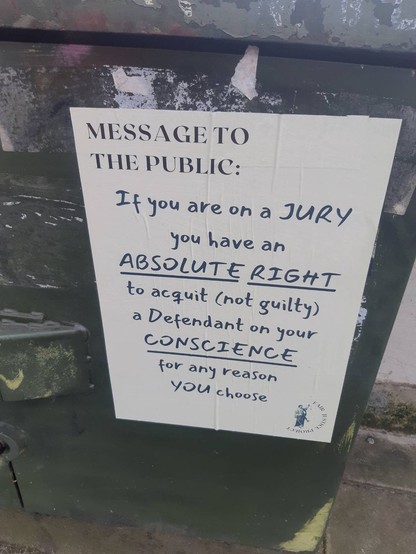 MESSAGE TO
THE PUBLIC:
If you are on a JURY
you have an
ABSOLUTE RIGHT
to acquit (not guilty)
a Defendant on your
CONSCIENCE
for any reason
YOU choose